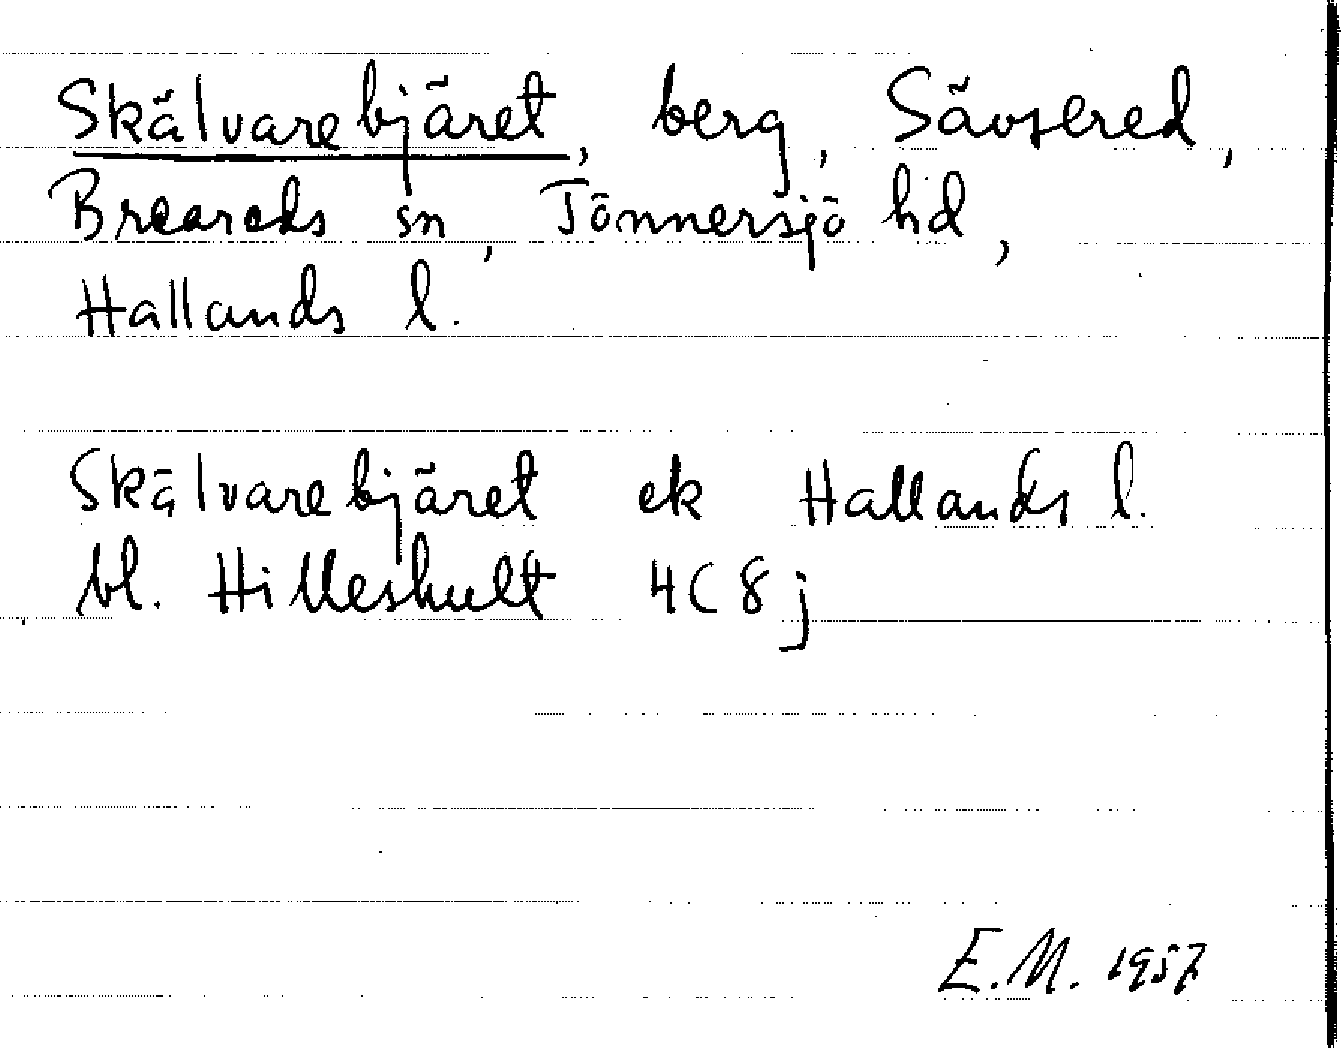 Skälvarebjäret, berg, Sävsered,
Breareds sn, Tönnersjö hd,
Hallands l.
Skälvarebjäret ek Hallands l.
bl. Hilleshult 4C 8j
E.M. 1957